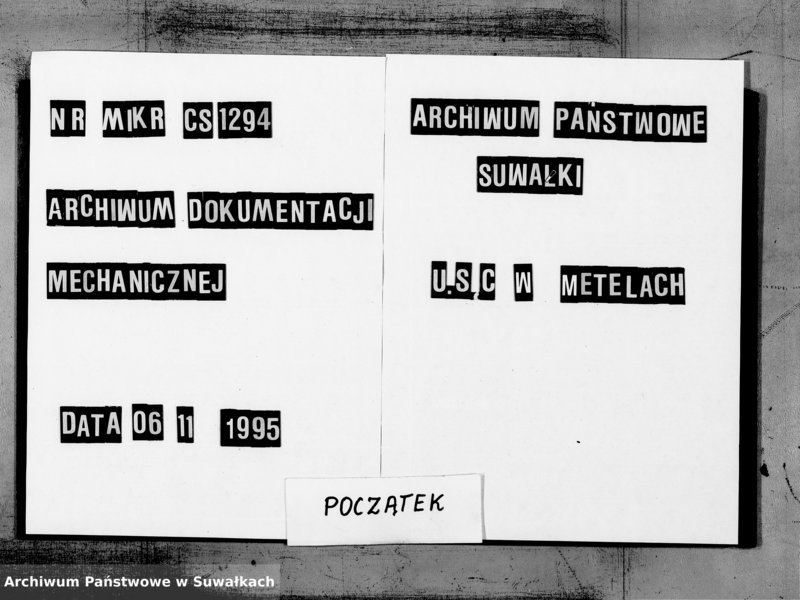 NR MIKR CS 1294
ARCHIWUM DOKUMENTACJI
MECHANICZNEJ
DATA 06 11 1995
ARCHIWUM PAŃSTWOWE
SUWAŁKI
U.S.C W METELACH
POCZĄTEK
Archiwum Państwowe w Suwałkach